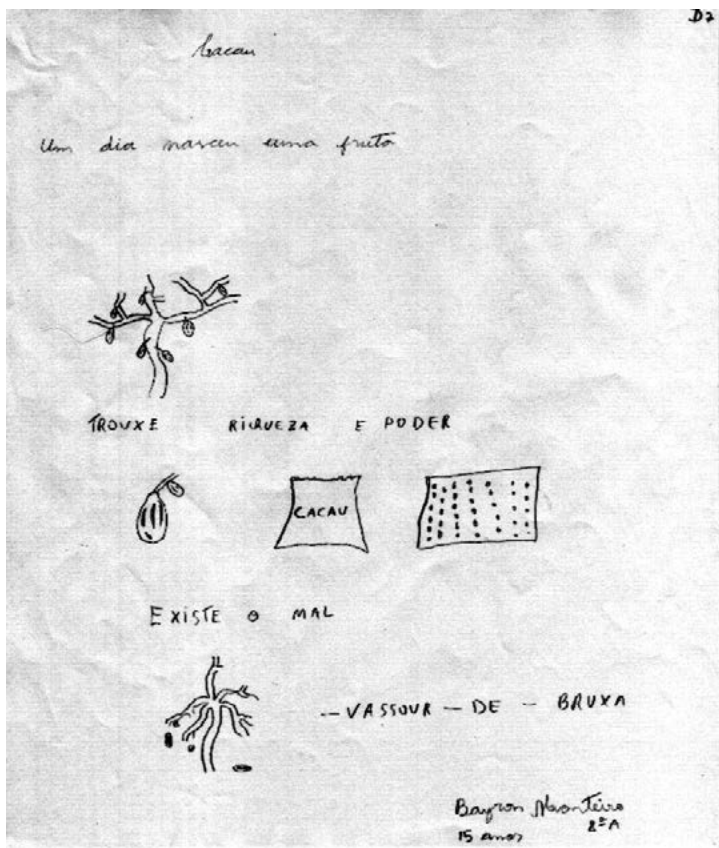 D2
Cacau
Um dia nasceu uma fruta
TROUXE RIQUEZA E PODER
CACAU
EXISTE O MAL
-VASSOUR-DE-BRUXA
Bayron Monteiro
15 anos 8ªA